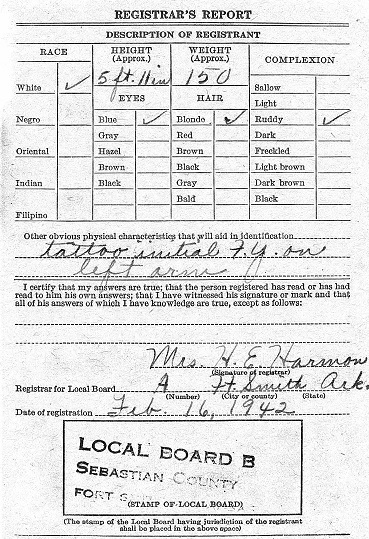 REGISTRAR'S REPORT
DESCRIPTION OF REGISTRANT
RACE HEIGHT (Approx.) WEIGHT (Approx.) COMPLEXION
5 ft. 11 in 150
White ✓ Sallow
EYES HAIR Light
Negro Blue ✓ Blonde ✓ Ruddy ✓
Gray Red Dark
Oriental Hazel Brown Freckled
Brown Black Light brown
Indian Black Gray Dark brown
Bald Black
Filipino
Other obvious physical characteristics that will aid in identification
tattoo initial F.Y. on
left arm
I certify that my answers are true; that the person registered has read or has had
read to him his own answers; that I have witnessed his signature or mark and that
all of his answers of which I have knowledge are true, except as follows:
Mrs H. E. Harmon
(Signature of registrar)
Registrar for Local Board A Ft. Smith Ark.
(Number) (City or county) (State)
Date of registration Feb. 16, 1942
LOCAL BOARD B
SEBASTIAN COUNTY
FORT
(STAMP OF LOCAL BOARD)
(The stamp of the Local Board having jurisdiction of the registrant
shall be placed in the above space)